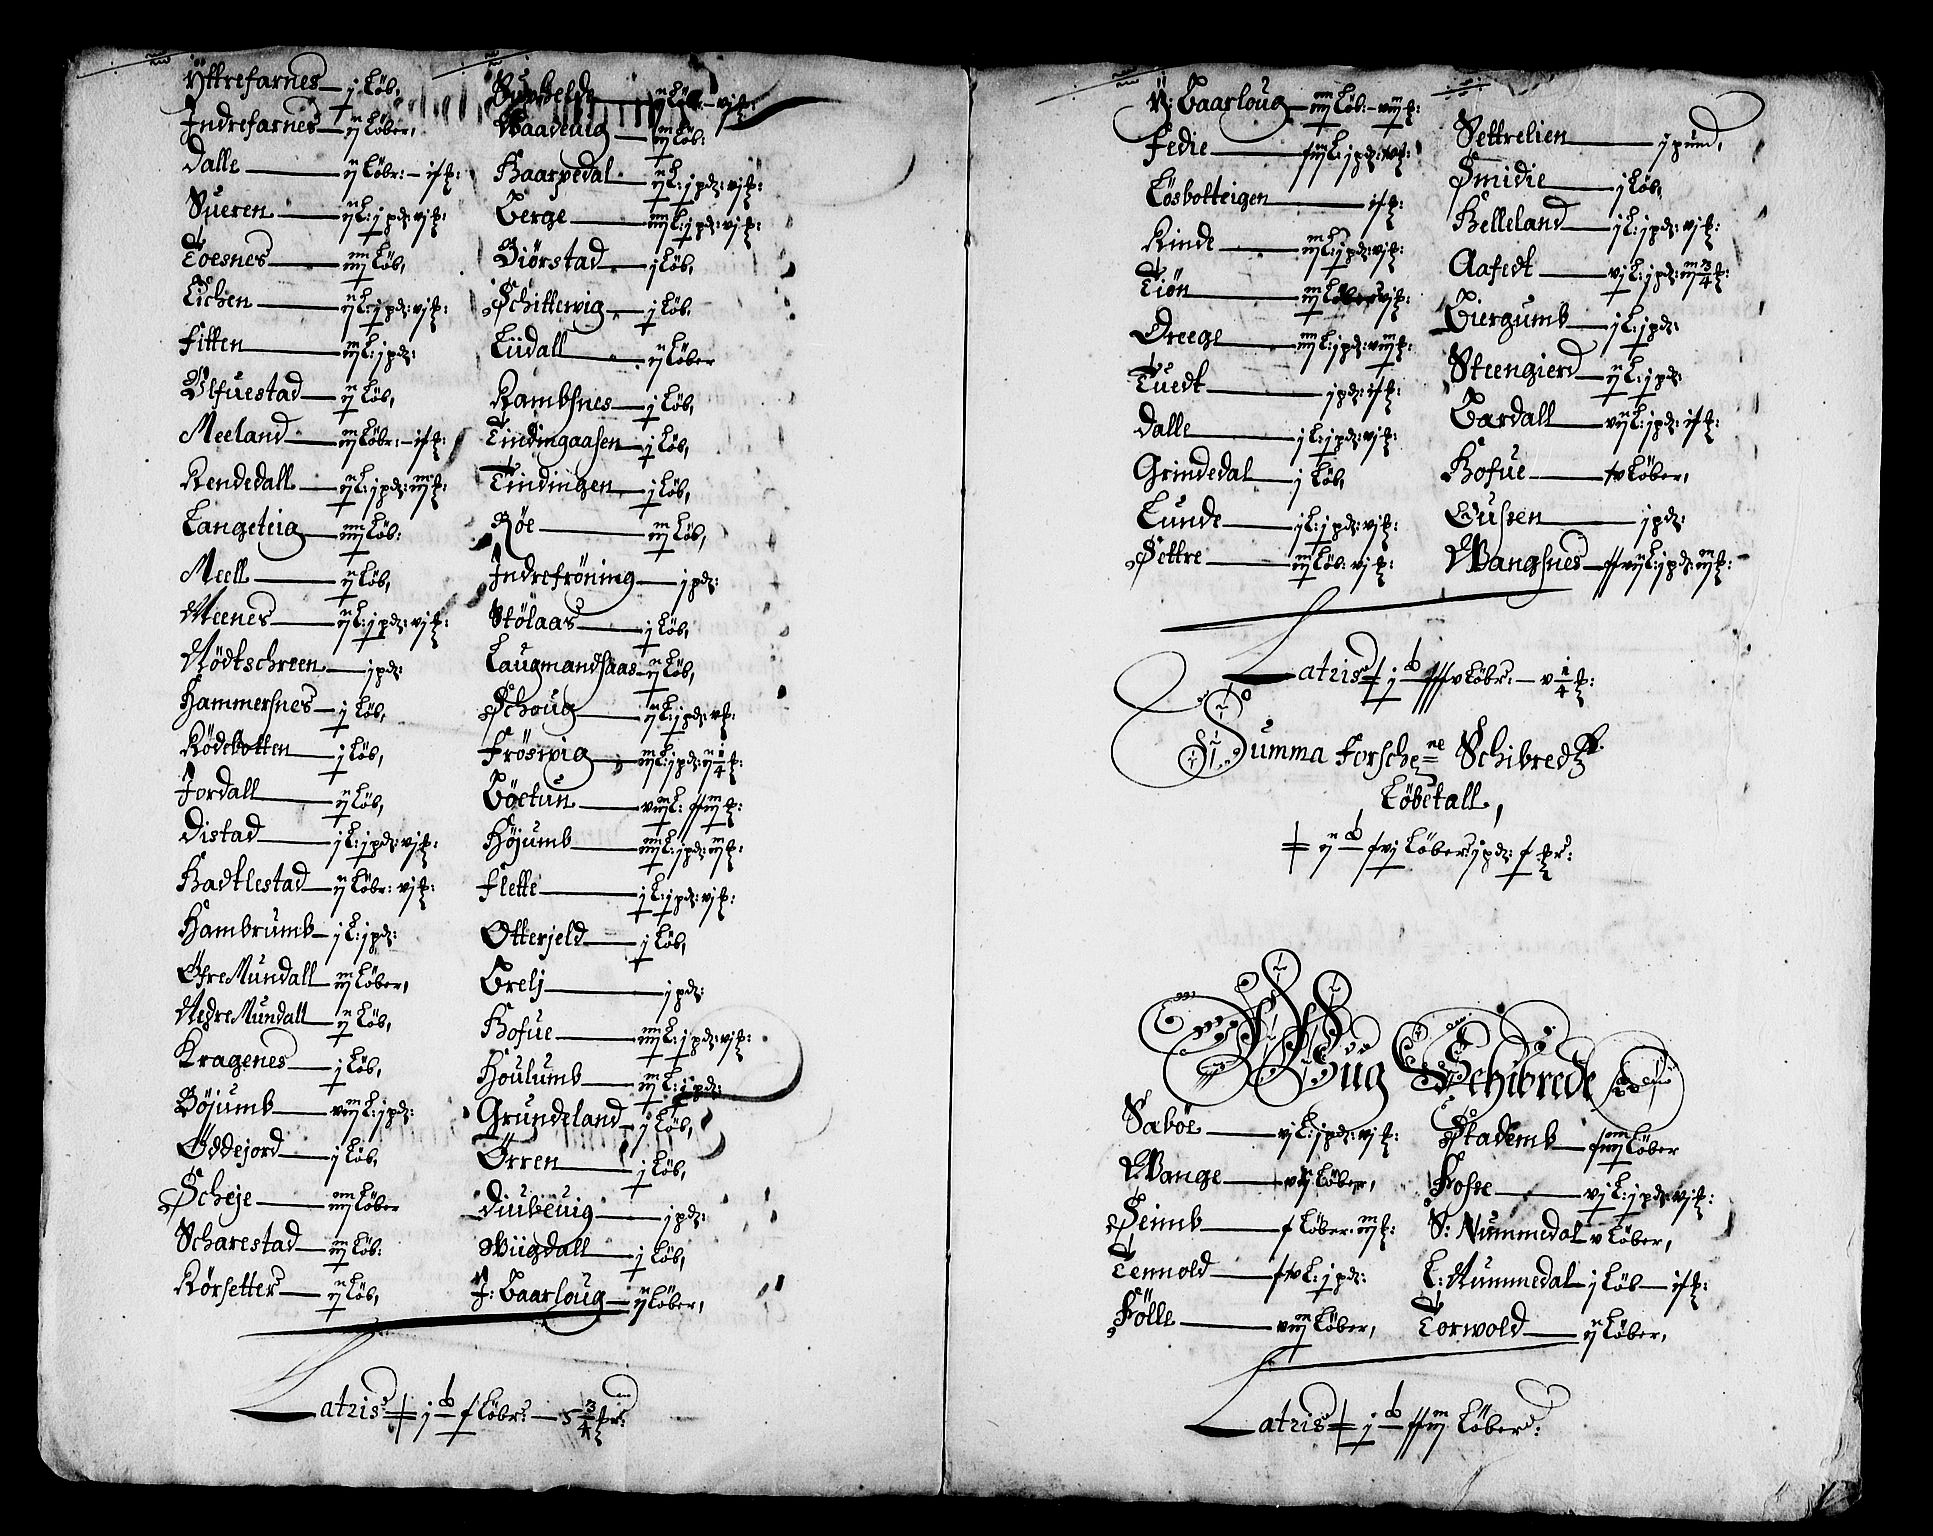 Yttrefarnes — j Löb,
Indrefarnes — ij Löber,
Dalle — ij Löbr: — if ꝑ:
Sueren — ij L: j pd: vj ꝑ:
Toesnes — iiij Löb,
Eichen — ij L: j pd: vj ꝑ:
Fitten — iij L: j pd:
Ulfuestad — ij Löb,
Meeland — iij Löbr: — if ꝑ:
Rendedall — ij L: j pd: iij ꝑ:
Langeteig — iiij Löb:
Meell — ij Löb,
Meenes — ij L: j pd: vj ꝑ:
Nödtschreen — j pd:
Hammersnes — j Löb,
Rödebotten — j Löb,
Jordall — ij Löb,
Distad — j L: j pd: vj ꝑ:
Hadtlestad — ij Löbr: vj ꝑ:
Hambrumb — j L: j pd:
Öfre Mundall — iij Löber,
Nedre Mundall — ij Löb,
Kragenes — j Löb,
Böjumb — viij L: j pd:
Öddejord — j Löb,
Scheje — iiij Löber
Scharestad — iij Löb:
Rörsetter — ij Löb,
Latris j f Löbr: — 5 3/4 ꝑr:
Waadeuig — iij Löb:
Haarpedal — ij L: j pd: vj ꝑ:
Berge — iiij L: j pd: vj ꝑ:
Biörstad — j Löb,
Schittewig — j Löb,
Liidall — ij Löber
Rambsnes — j Löb,
Tindingaasen — j Löb,
Tindingen — j Löb,
Röe — iij Löb,
Indrefröning — j pd:
Stölaas — j Löb,
Laugmandsaas — ij Löb,
Schoug — ij L: j pd: vj ꝑ:
Fröswig — iij L: j pd: ij 1/4 ꝑ:
Böetun — viij L: ffiij ꝑ:
Höjumb — iiij L: j pd: iij ꝑ:
Flette — j L: j pd: vj ꝑ:
Otterjeld — j Löb,
Brelj — j pd:
Hofue — iiij L: j pd: vj ꝑ:
Houlumb — iij L: j pd:
Grundeland — j Löb,
Örren — j Löb,
Diubeuig — j pd:
Wiigdall — j Löb,
J: Baarloug — ij Löber,
Y: Baarloug — iiij Löb: — viij ꝑ:
Fedie — fiij L: j pd:
Lösbotteigen — if ꝑ:
Rinde — iij L: j pd: vj ꝑ:
Tiön — iij Löber vj ꝑ:
Dreege — iiij L: j pd: viij ꝑ:
Tuedt — j pd: if ꝑ:
Dalle — j L: j pd: vj ꝑ:
Grindedal — j Löb,
Lunde — j L: j pd: vj ꝑ:
Settre — iij Löb: vj ꝑ:
Settrelien — j pund,
Smidie — j Löb,
Helleland — j L: j pd: vj ꝑ:
Aafedt — vj L: j pd: iij 3/4 ꝑ:
Biergumb — j L: j pd:
Steengierd — ij L: j pd:
Bardall — vij L: j pd: if ꝑ:
Hofue — fv Löber,
Gussen — j pd:
Wangsnes — ffvij L: j pd: iij ꝑ:
Latris j fffv Löbr: — v 1/4 ꝑ:
Summa Forschene Schibredz
Löbetall,
ij fvj Löber: j pd: f ꝑr:
Schibrede
Saböe — vj L: j pd: vj ꝑ:
Wange — vij Löber,
Seimb — f Löber: iij ꝑ:
Tennold — fiv L: j pd:
Fölle — viij Löber,
Stademb — fiiij Löber
Hofse — vj L: j pd: vj ꝑ:
S: Nummedal v Löber,
L: Nummedal j Löb — if ꝑ:
Torwold — ij Löber,
Latris j ffiij Löber: